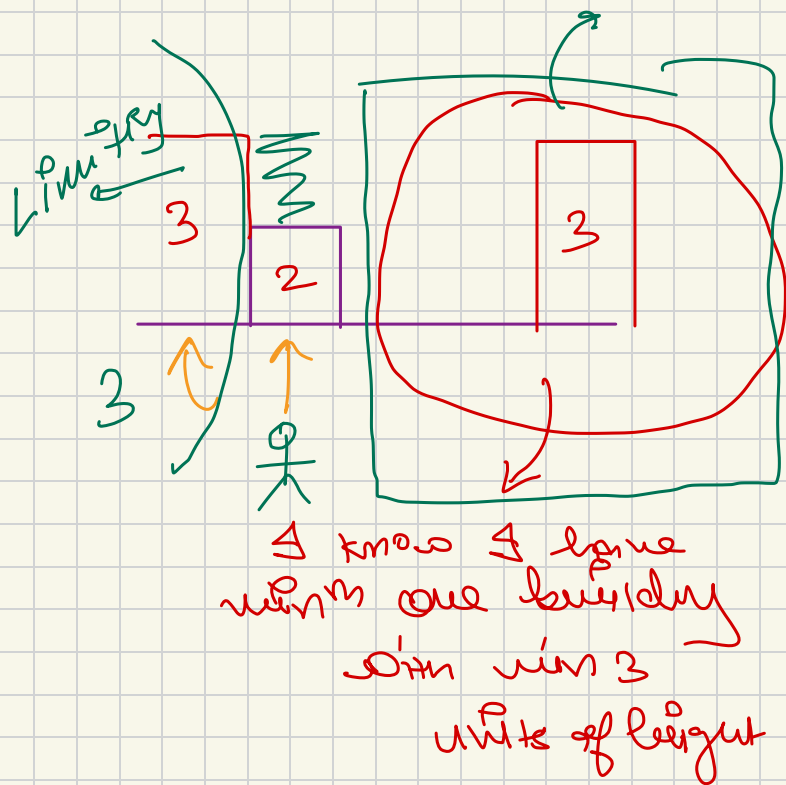 Limiting
3
3
2
3
I know I have
minm one building
with min 3
units of height